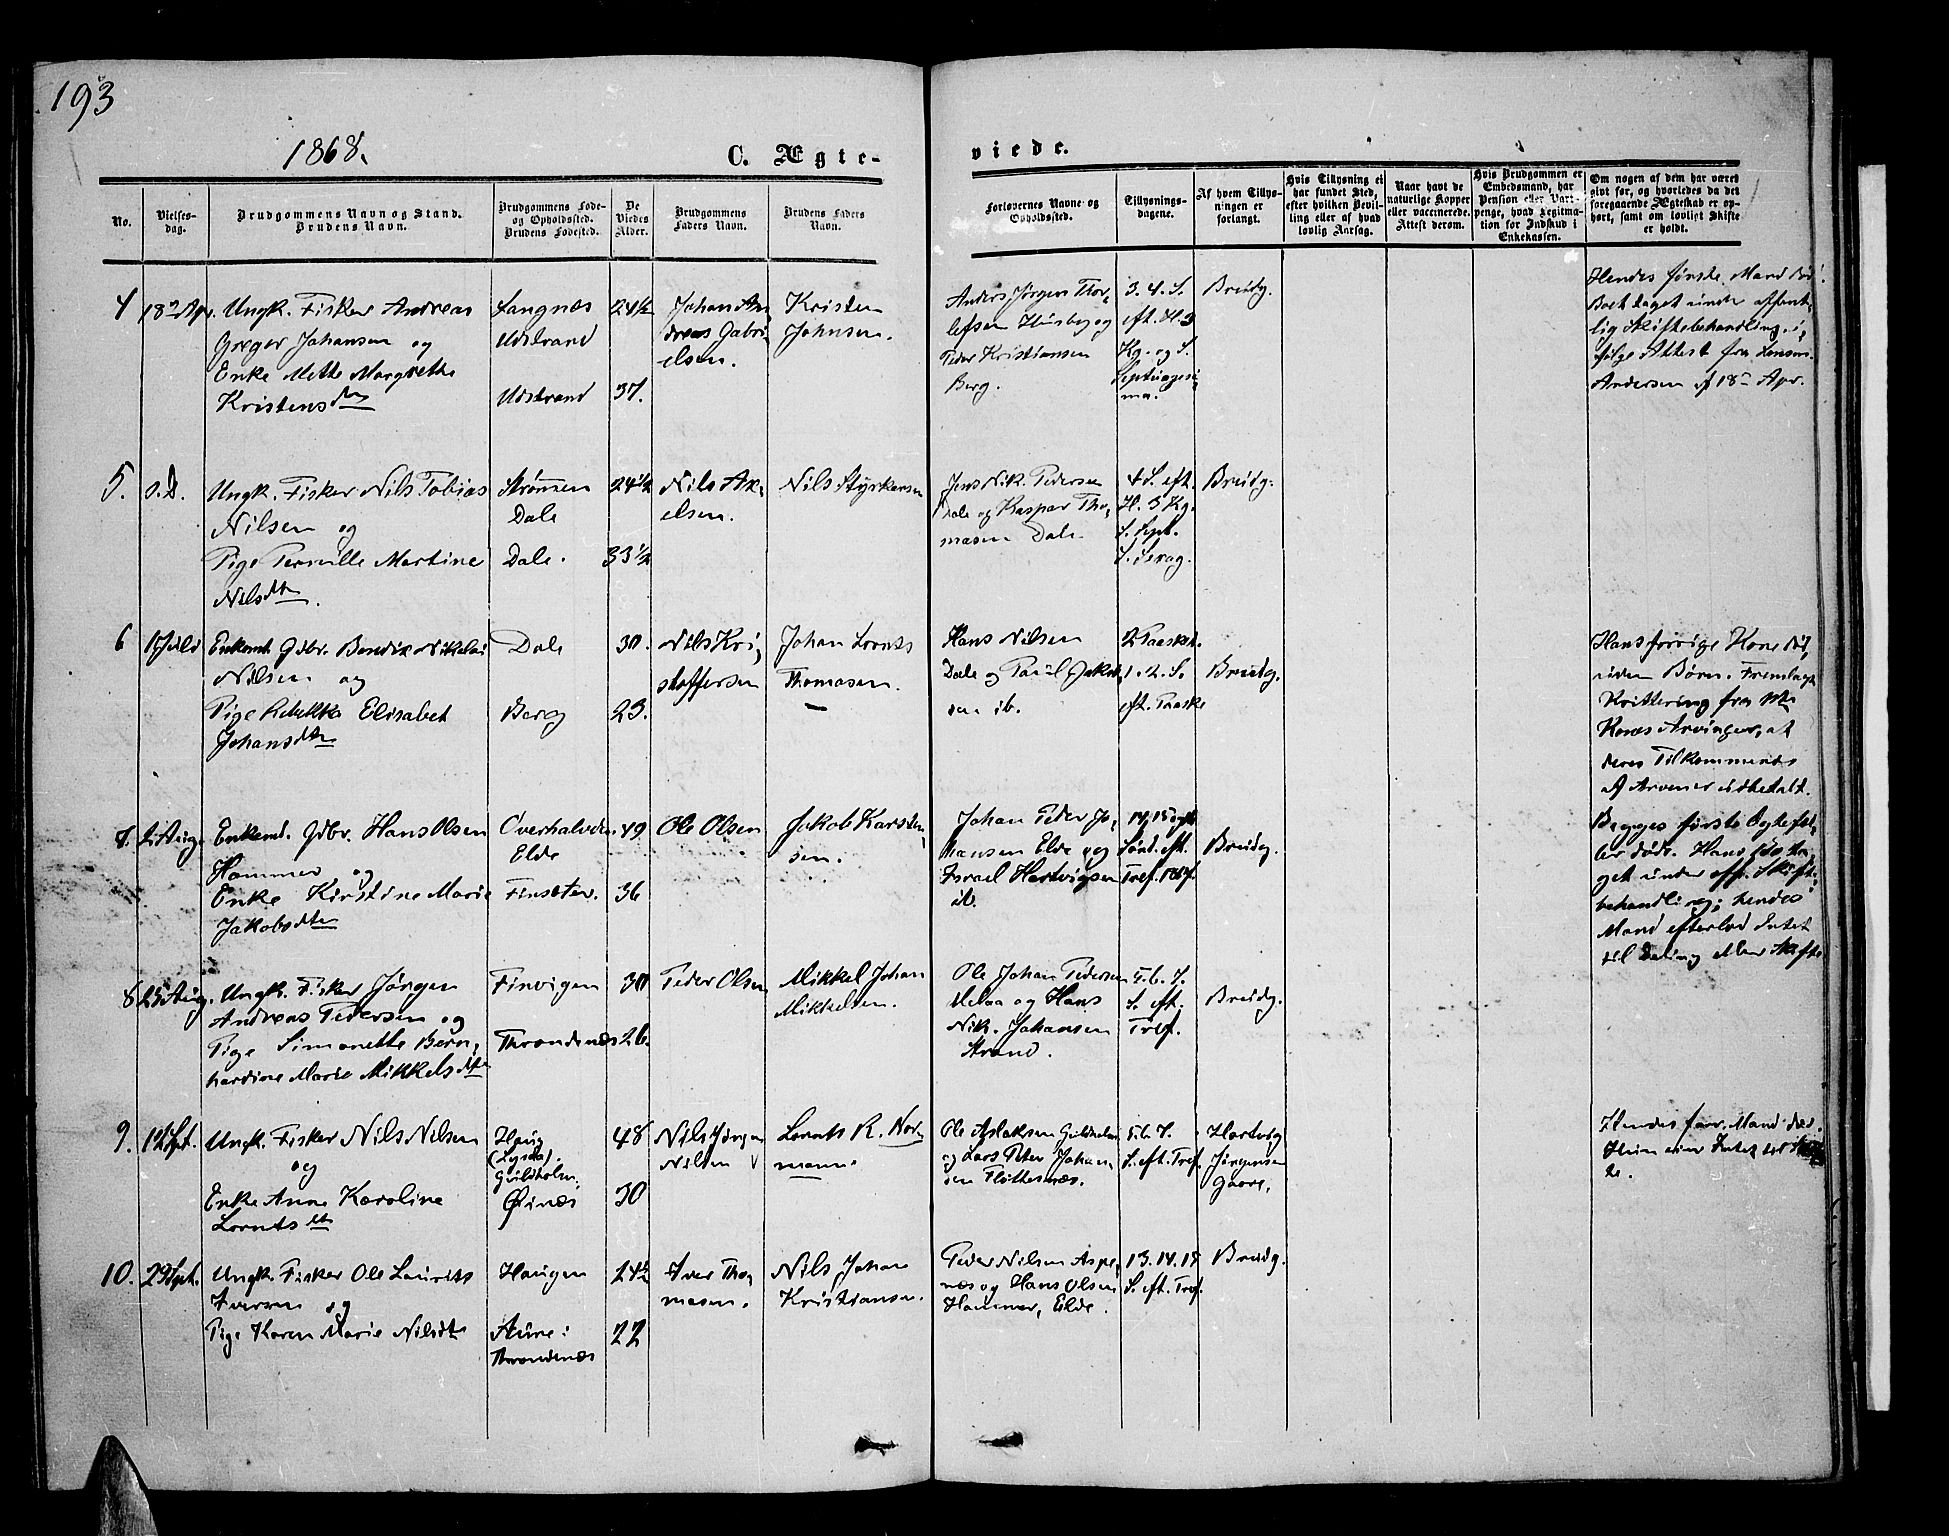 193
1868.
C. Ægte-
viede.
No.
Vielses-
dag.
Brudgommens Navn og Stand.
Brudens Navn.
Brudgommens Føde-
og Opholdssted.
Brudens Fødested.
De
Viedes
Alder.
Brudgommens
Faders Navn.
Brudens Faders
Navn.
Forlovernes Navne og
Opholdssted.
Tillysnings-
dagene.
Af hvem Tillys-
ningen er
forlangt.
Hvis Tillysning ei
har fundet Sted,
efter hvilken Bevil-
ling eller af hvad
lovlig Aarsag.
Naar havt de
naturlige Kopper
eller vaccinerede.
Attest derom.
Hvis Brudgommen er
Embedsmand, har
Pension eller Vart-
penge, hvad Legitima-
tion for Indskud i
Enkekassen.
Om nogen af dem har været
givt før, og hvorledes da det
foregaaende Ægteskab er op-
hørt, samt om lovligt Skifte
er holdt.
4
18de Apr.
Ungk. Fisker Andreas
Greger Johansen og
Enke Mette Margrethe
Kristensdtr
Langnæs
Udstrand
Udstrand
24½
37.
Johan An-
dreas Gabri-
elsen.
Kristen
Johnsen.
Anders Jørgen Thor-
lefsen Husby og
Peder Kristiansen
Berg.
3. 4. S.
eft. H. 3
Kg. og S.
Septuagesi-
ma.
Brudg.
Hendes første Mand død.
Boet taget under offent-
lig Skiftebehandling i-
følge Attest fra Lensm.
Andersen af 18de Apr.
5.
s.D.
Ungk. Fisker Nils Tobias
Nilsen og
Pige Pernille Martine
Nilsdtr.
Strømmen
Dale
Dale.
24½
33½
Nils Ax-
elsen.
Nils Styrkersen
Jens Nik. Pedersen
Dale og Kaspar Tho-
masen Dale
4 S. eft.
H. 3 Kg.
S. Sept.
S. Sexag.
Brudg.
6
Juli
Enkemd. Gdbr. Bendix Nikolai
Nilsen og
Pige Rebekka Elisabet
Johansdtr
Dale
Berg
30.
23.
Nils Kri-
stoffersen
Johan Lornts
Thomasen.
Hans Nilsen
Dale og Paul Jakob-
sen ib.
2 Paaskd.
1. 2. S.
eft. Paaske
Brudg.
Hans forrige Kone død
uden Børn. Fremlagt
Kvittering fra
Kones Arvinger, at
deres Tilkommende
af Arven er udbetalt.
7.
2 Aug.
Enkemd. Gdbr. Hans Olsen
Hammer og
Enke Kirstine Marie
Jakobsdtr
Overhalvden
Elde
Finsæter.
49
36
Ole Olsen
Jakob Karsten-
sen.
Johan Peder Jo-
hansen Elde og
Israel Hartvigsen
ib.
14, 15 og
Sønd. eft.
Tref. 1867.
Brudg.
Begges første Ægtefæl-
ler døde. Hans Bo ta-
get under off. Skifte-
behandling; hendes
Mand efterlod Intet
til Deling eller Skifte
8.
25 Aug.
Ungk. Fisker Jørgen
Andreas Pedersen og
Pige Simonette Bern-
hardine Marie Mikkelsdtr
Finvigen
Throndenæs
30
26.
Peder Olsen
Mikkel Johan
Mikkelsen.
Ole Johan Pedersen
Melaa og Hans
Nik. Johansen
Strand.
5. 6. 7.
S. eft.
Tref.
Brudg.
9.
12 Spt.
Ungk. Fisker Nils Nilsen
og
Enke Anne Karoline
Lorntsdtr
Haug
(Lysda)
Guldholm.
Øinæs
48
30
Nils Jørgen
Nilsen
Lornts R. Nor-
mann.
Ole Aslaksen Guldholm
og Lars Peter Johan-
sen Flottesnæs.
5. 6. 7.
S. eft. Tref.
Hartvig
Jørgensen
Gaare.
Hendes forr. Mand død.
10.
29 Spt.
Ungk. Fisker Ole Laurits
Iversen og
Pige Karen Marie Nilsdtr
Haugen
Aune i
Throndenæs
24½
22
Iver Tho-
masen.
Nils Johan
Kristiansen.
Peder Nilsen Aspe-
næs og Hans Olsen
Hammer, Elde.
13. 14. 15
S. eft. Tref.
Brudg.